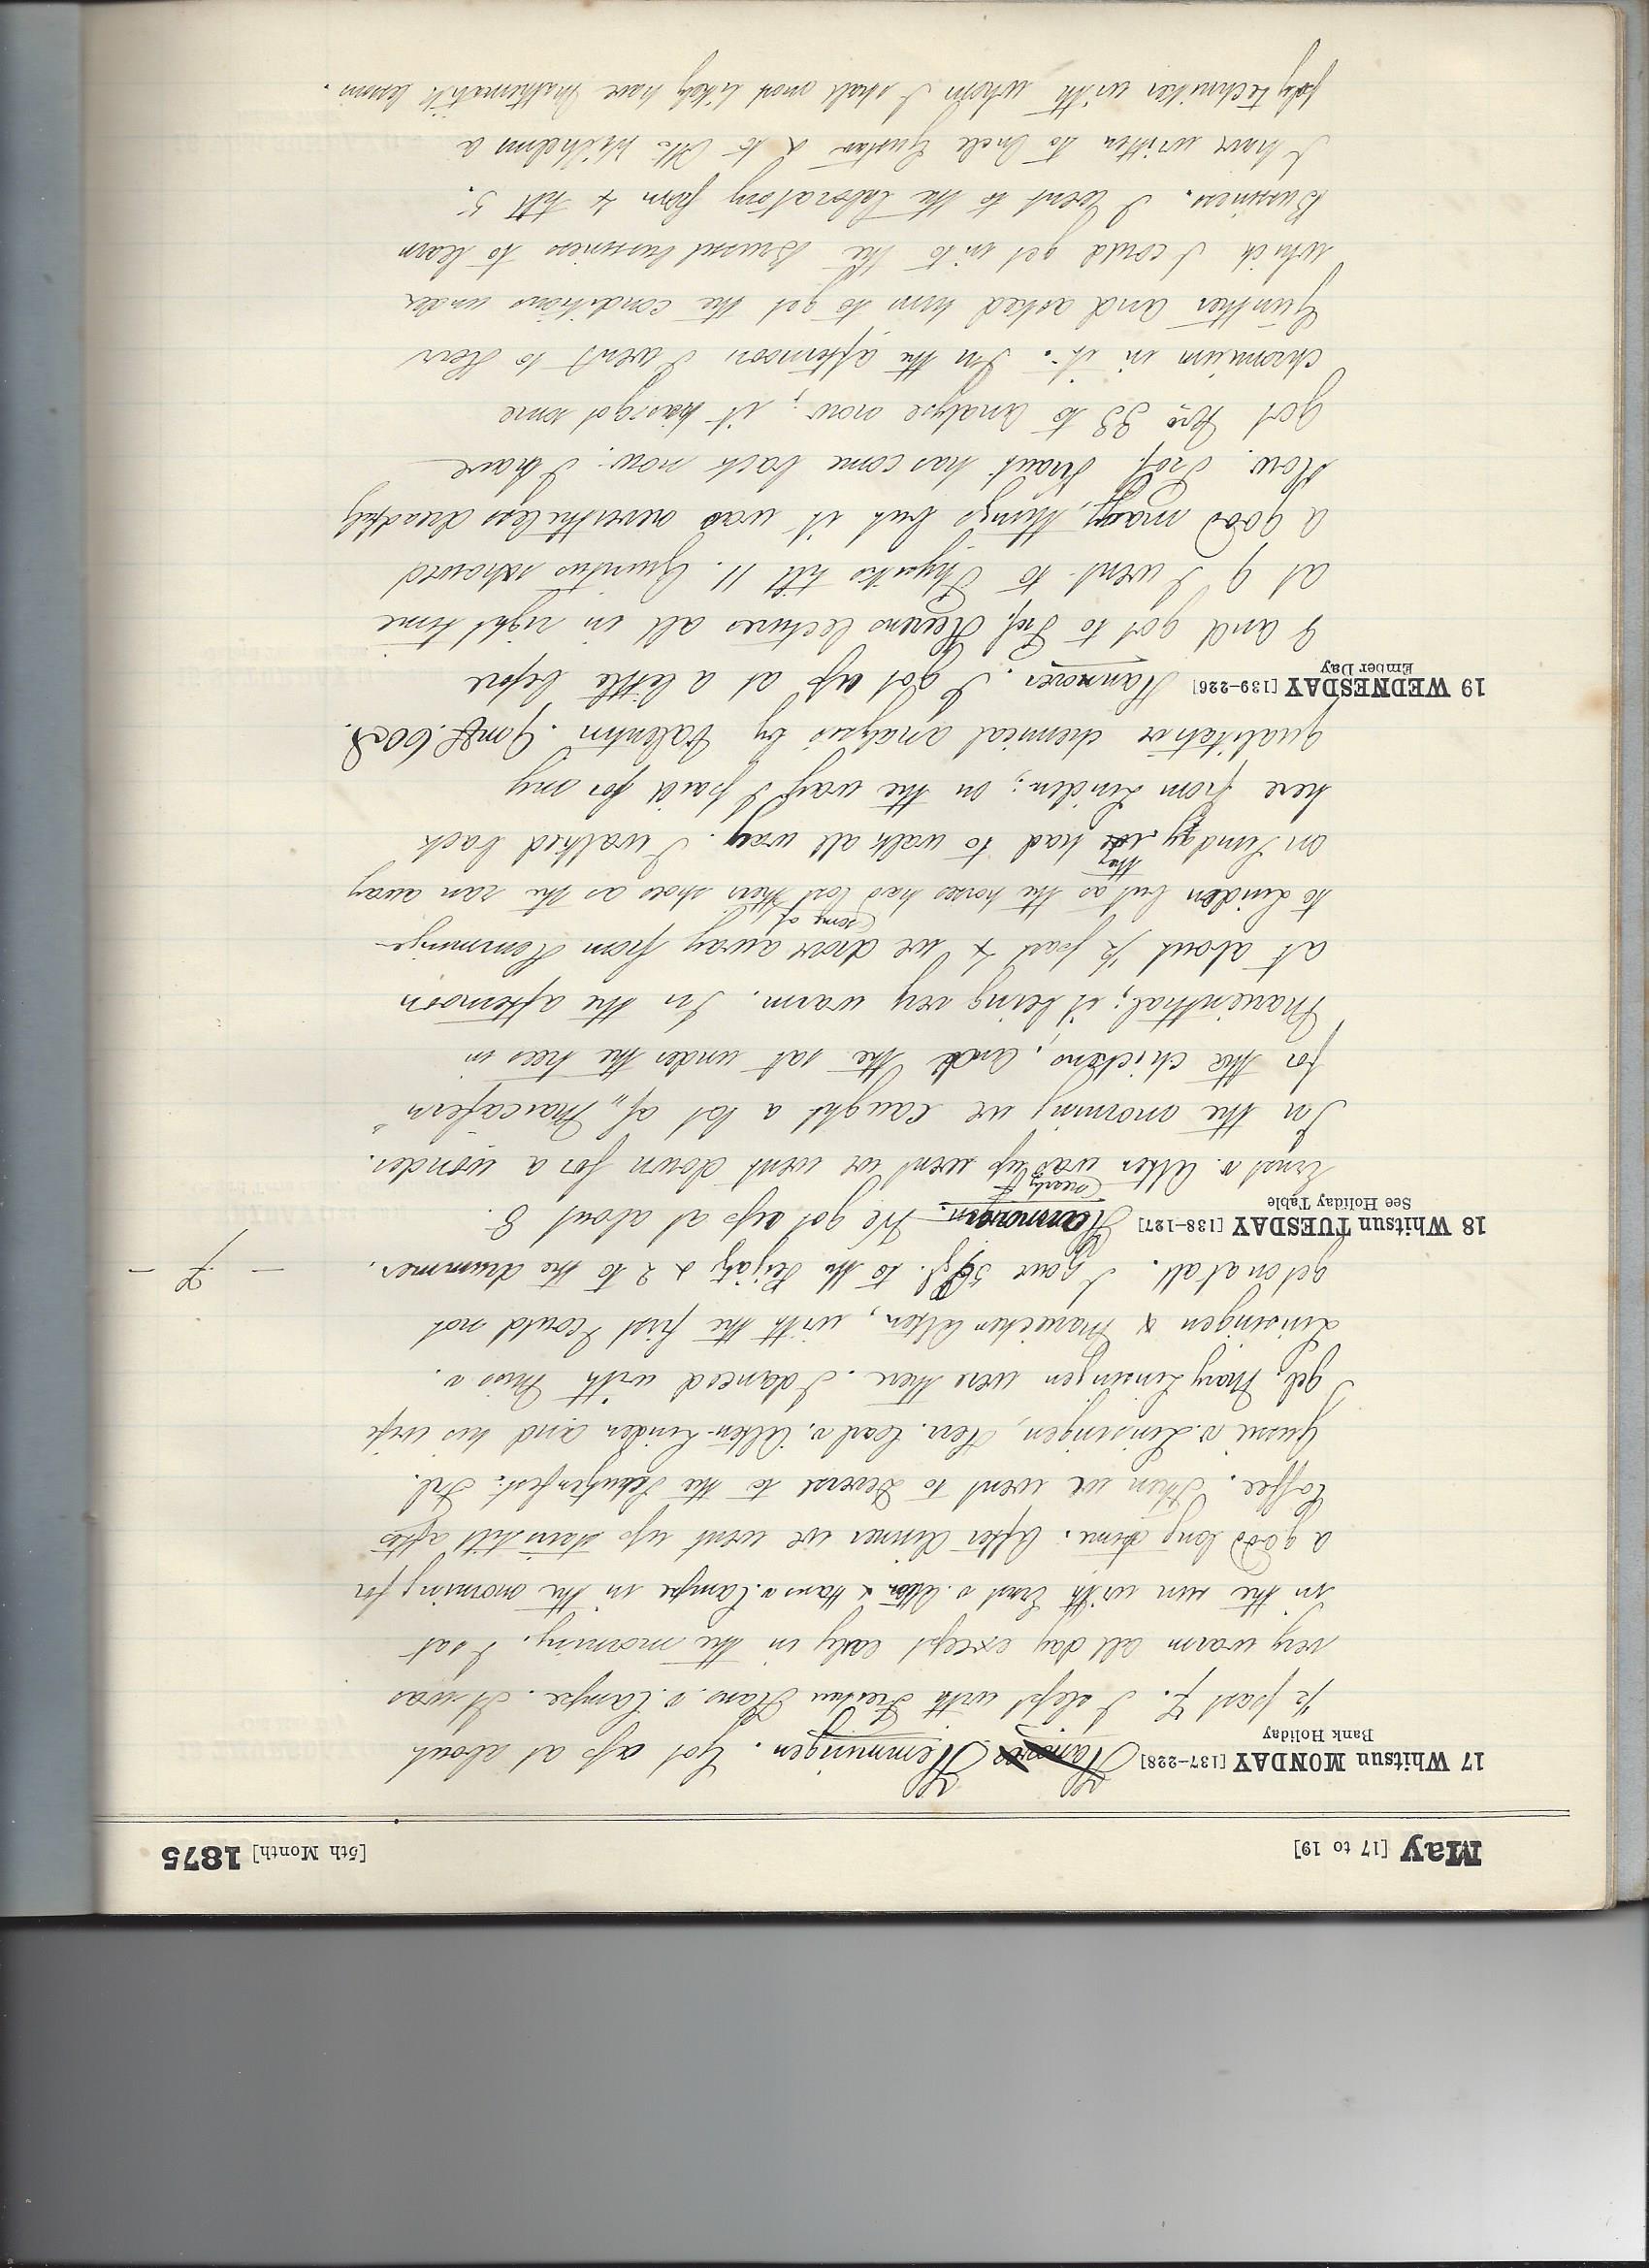 May [17 to 19] [5th Month] 1875
17 Whitsun MONDAY [137-228] Hanover Hemmingen. Got up at about
Bank Holiday
1/2 past 7. I slept with Hans v. Campe. It was
very warm all day except early in the morning. I sat
in the sun with Ernst v. Alten & Hans v. Campe in the morning for
a good long time. After dinner we went up stairs till after
Coffee. Then we went to Devese to the Schutzenfest. Frl.
v. Linsingen, Herr. Carl v. Alten-Linden and his wife
geb. Mary Linsingen were there. I danced with Miss v.
Linsingen & Mariechen Alten, with the first I could not
get on at all. I gave 5 to the & 2 to the drummer. - 7 -
18 Whitsun TUESDAY [138-127] Hannover. We got up at about 8.
See Holiday Table
nearly
Ernst v. Alten was up went we went down for a wonder.
In the morning we caught a lot of „Maikafern“
for the chickens; and the sat under the trees in
Marienthal; it being very warm. In the afternoon
at about 1/2 past 4 we drove away from Hemminge-
some of
to Linden but as the horses had lost their shoes as the ran away
they
on Sunday had to walk all way. I walked back
here from Linden; on the way I paid for my
qualitative chemical analysis by Valentin. 9 mf. 60
19 WEDNESDAY [139-226] Hannover. I got up at a little before
Ember Day
8 and got to Prof. Heerens lectures all in right time
at 9 I went to Physiks till 11. Quintus showed
a good many things but it was nevertheless dreadfuly
slow. Prof. Kraut has come back now. I have
got No 33 to analyse now; it has got some
chromium in it. In the afternoon I went to Herr
Günther and asked him to get the conditions under
which I could get into the Brussel bussiness to learn
Bussiness. I went to the laboratory from 4 till 5.
I have written to Uncle Gustav & to Wilhelm a
polytechniker with whom I shall most likely have Mathematik lessons.